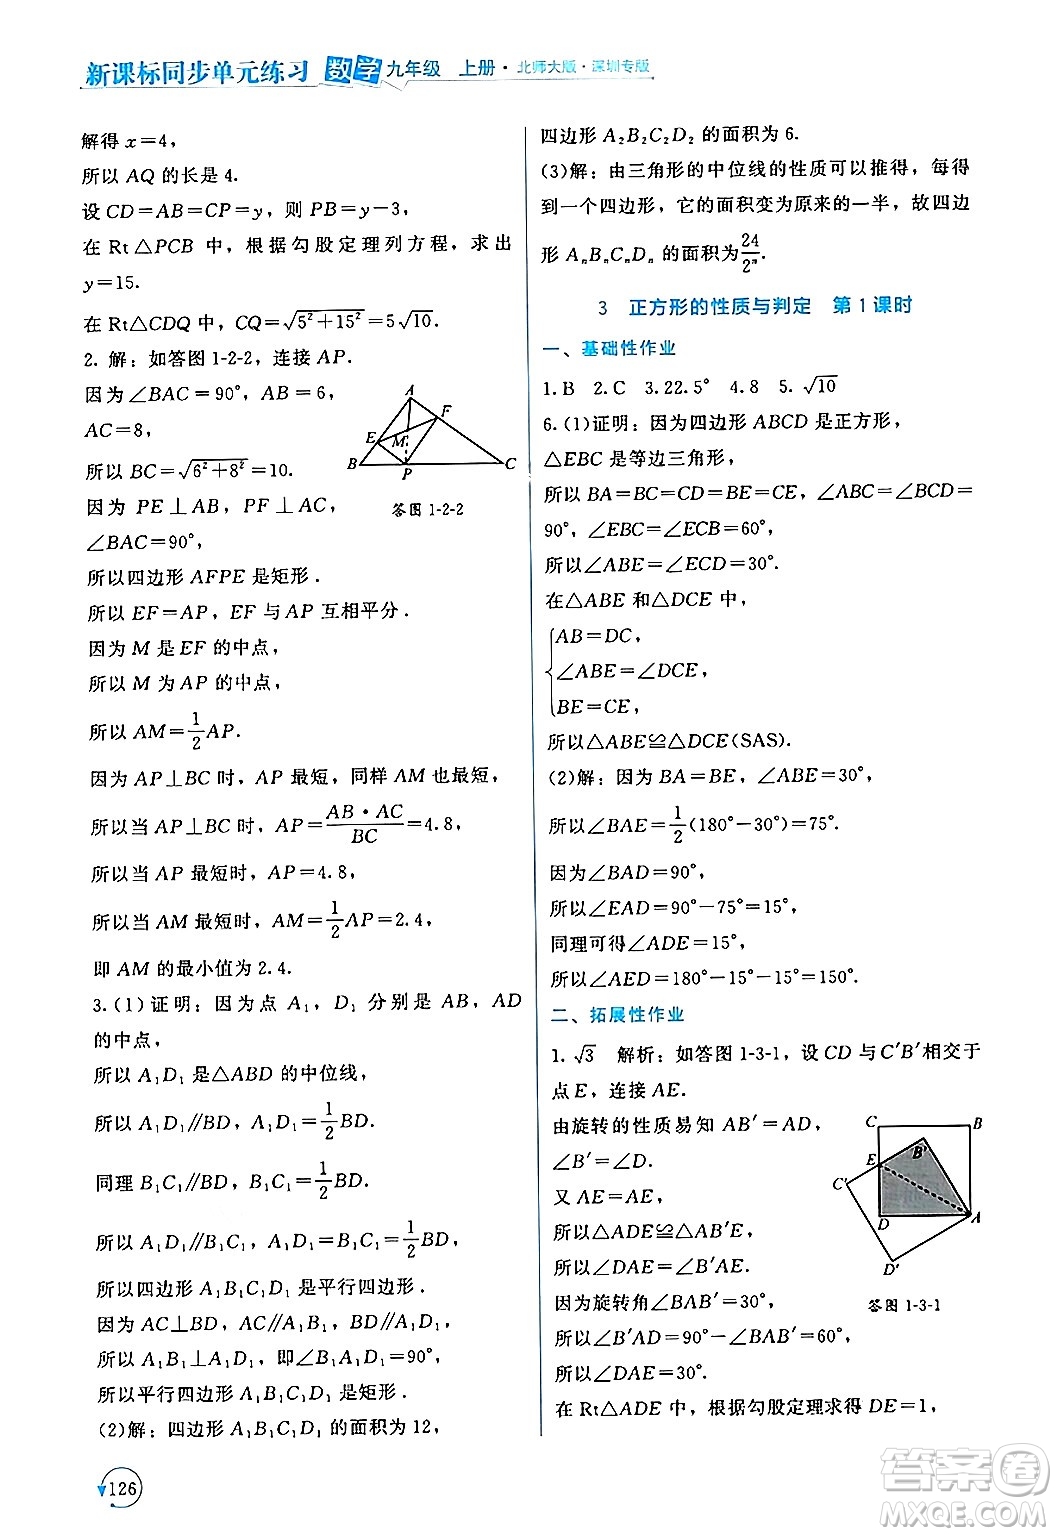 新课标同步单元练习 数学 九年级 上册·北师大版·深圳专版
解得 x=4,
所以 AQ 的长是 4.
设 CD=AB=CP=y, 则 PB=y-3,
在 Rt△PCB 中, 根据勾股定理列方程, 求出
y=15.
在 Rt△CDQ 中, CQ=√(5²+15²)=5√10.
2. 解: 如答图 1-2-2, 连接 AP.
因为∠BAC=90°, AB=6,
AC=8,
所以 BC=√(6²+8²)=10.
因为 PE⊥AB, PF⊥AC,
∠BAC=90°,
所以四边形 AFPE 是矩形.
所以 EF=AP, EF 与 AP 互相平分.
因为 M 是 EF 的中点,
所以 M 为 AP 的中点,
所以 AM=1/2 AP.
因为 AP⊥BC 时, AP 最短, 同样 AM 也最短,
所以当 AP⊥BC 时, AP=AB·AC/BC=4.8,
所以当 AP 最短时, AP=4.8,
所以当 AM 最短时, AM=1/2 AP=2.4,
即 AM 的最小值为 2.4.
A
F
E
M
B
P
C
答图 1-2-2
3.(1)证明: 因为点 A₁, D₁ 分别是 AB, AD
的中点,
所以 A₁D₁ 是△ABD 的中位线,
所以 A₁D₁∥BD, A₁D₁=1/2 BD.
同理 B₁C₁∥BD, B₁C₁=1/2 BD.
所以 A₁D₁∥B₁C₁, A₁D₁=B₁C₁=1/2 BD,
所以四边形 A₁B₁C₁D₁ 是平行四边形.
因为 AC⊥BD, AC∥A₁B₁, BD∥A₁D₁,
所以 A₁B₁⊥A₁D₁, 即∠B₁A₁D₁=90°,
所以平行四边形 A₁B₁C₁D₁ 是矩形.
(2)解: 四边形 A₁B₁C₁D₁ 的面积为 12,
四边形 A₂B₂C₂D₂ 的面积为 6.
(3)解: 由三角形的中位线的性质可以推得, 每得
到一个四边形, 它的面积变为原来的一半, 故四边
形 AₙBₙCₙDₙ 的面积为24/2ⁿ.
3 正方形的性质与判定 第 1 课时
一、基础性作业
1.B 2.C 3.22.5° 4.8 5.√10
6.(1)证明: 因为四边形 ABCD 是正方形,
△EBC 是等边三角形,
所以 BA=BC=CD=BE=CE, ∠ABC=∠BCD=
90°, ∠EBC=∠ECB=60°,
所以∠ABE=∠ECD=30°.
在△ABE 和△DCE 中,
{AB=DC,
∠ABE=∠DCE,
BE=CE,
所以△ABE≌△DCE(SAS).
(2)解: 因为 BA=BE, ∠ABE=30°,
所以∠BAE=1/2(180°-30°)=75°.
因为∠BAD=90°,
所以∠EAD=90°-75°=15°,
同理可得∠ADE=15°,
所以∠AED=180°-15°-15°=150°.
二、拓展性作业
1.√3 解析: 如答图 1-3-1, 设 CD 与C′B′相交于
点 E, 连接 AE.
由旋转的性质易知 AB′=AD,
∠B′=∠D.
又 AE=AE,
所以△ADE≌△AB′E,
所以∠DAE=∠B′AE.
因为旋转角∠BAB′=30°,
所以∠B′AD=90°-∠BAB′=60°,
所以∠DAE=30°.
在 Rt△ADE 中, 根据勾股定理求得 DE=1,
C
B
B′
E
C′
D
A
D′
答图 1-3-1
126
答案圈
MXQE.COM